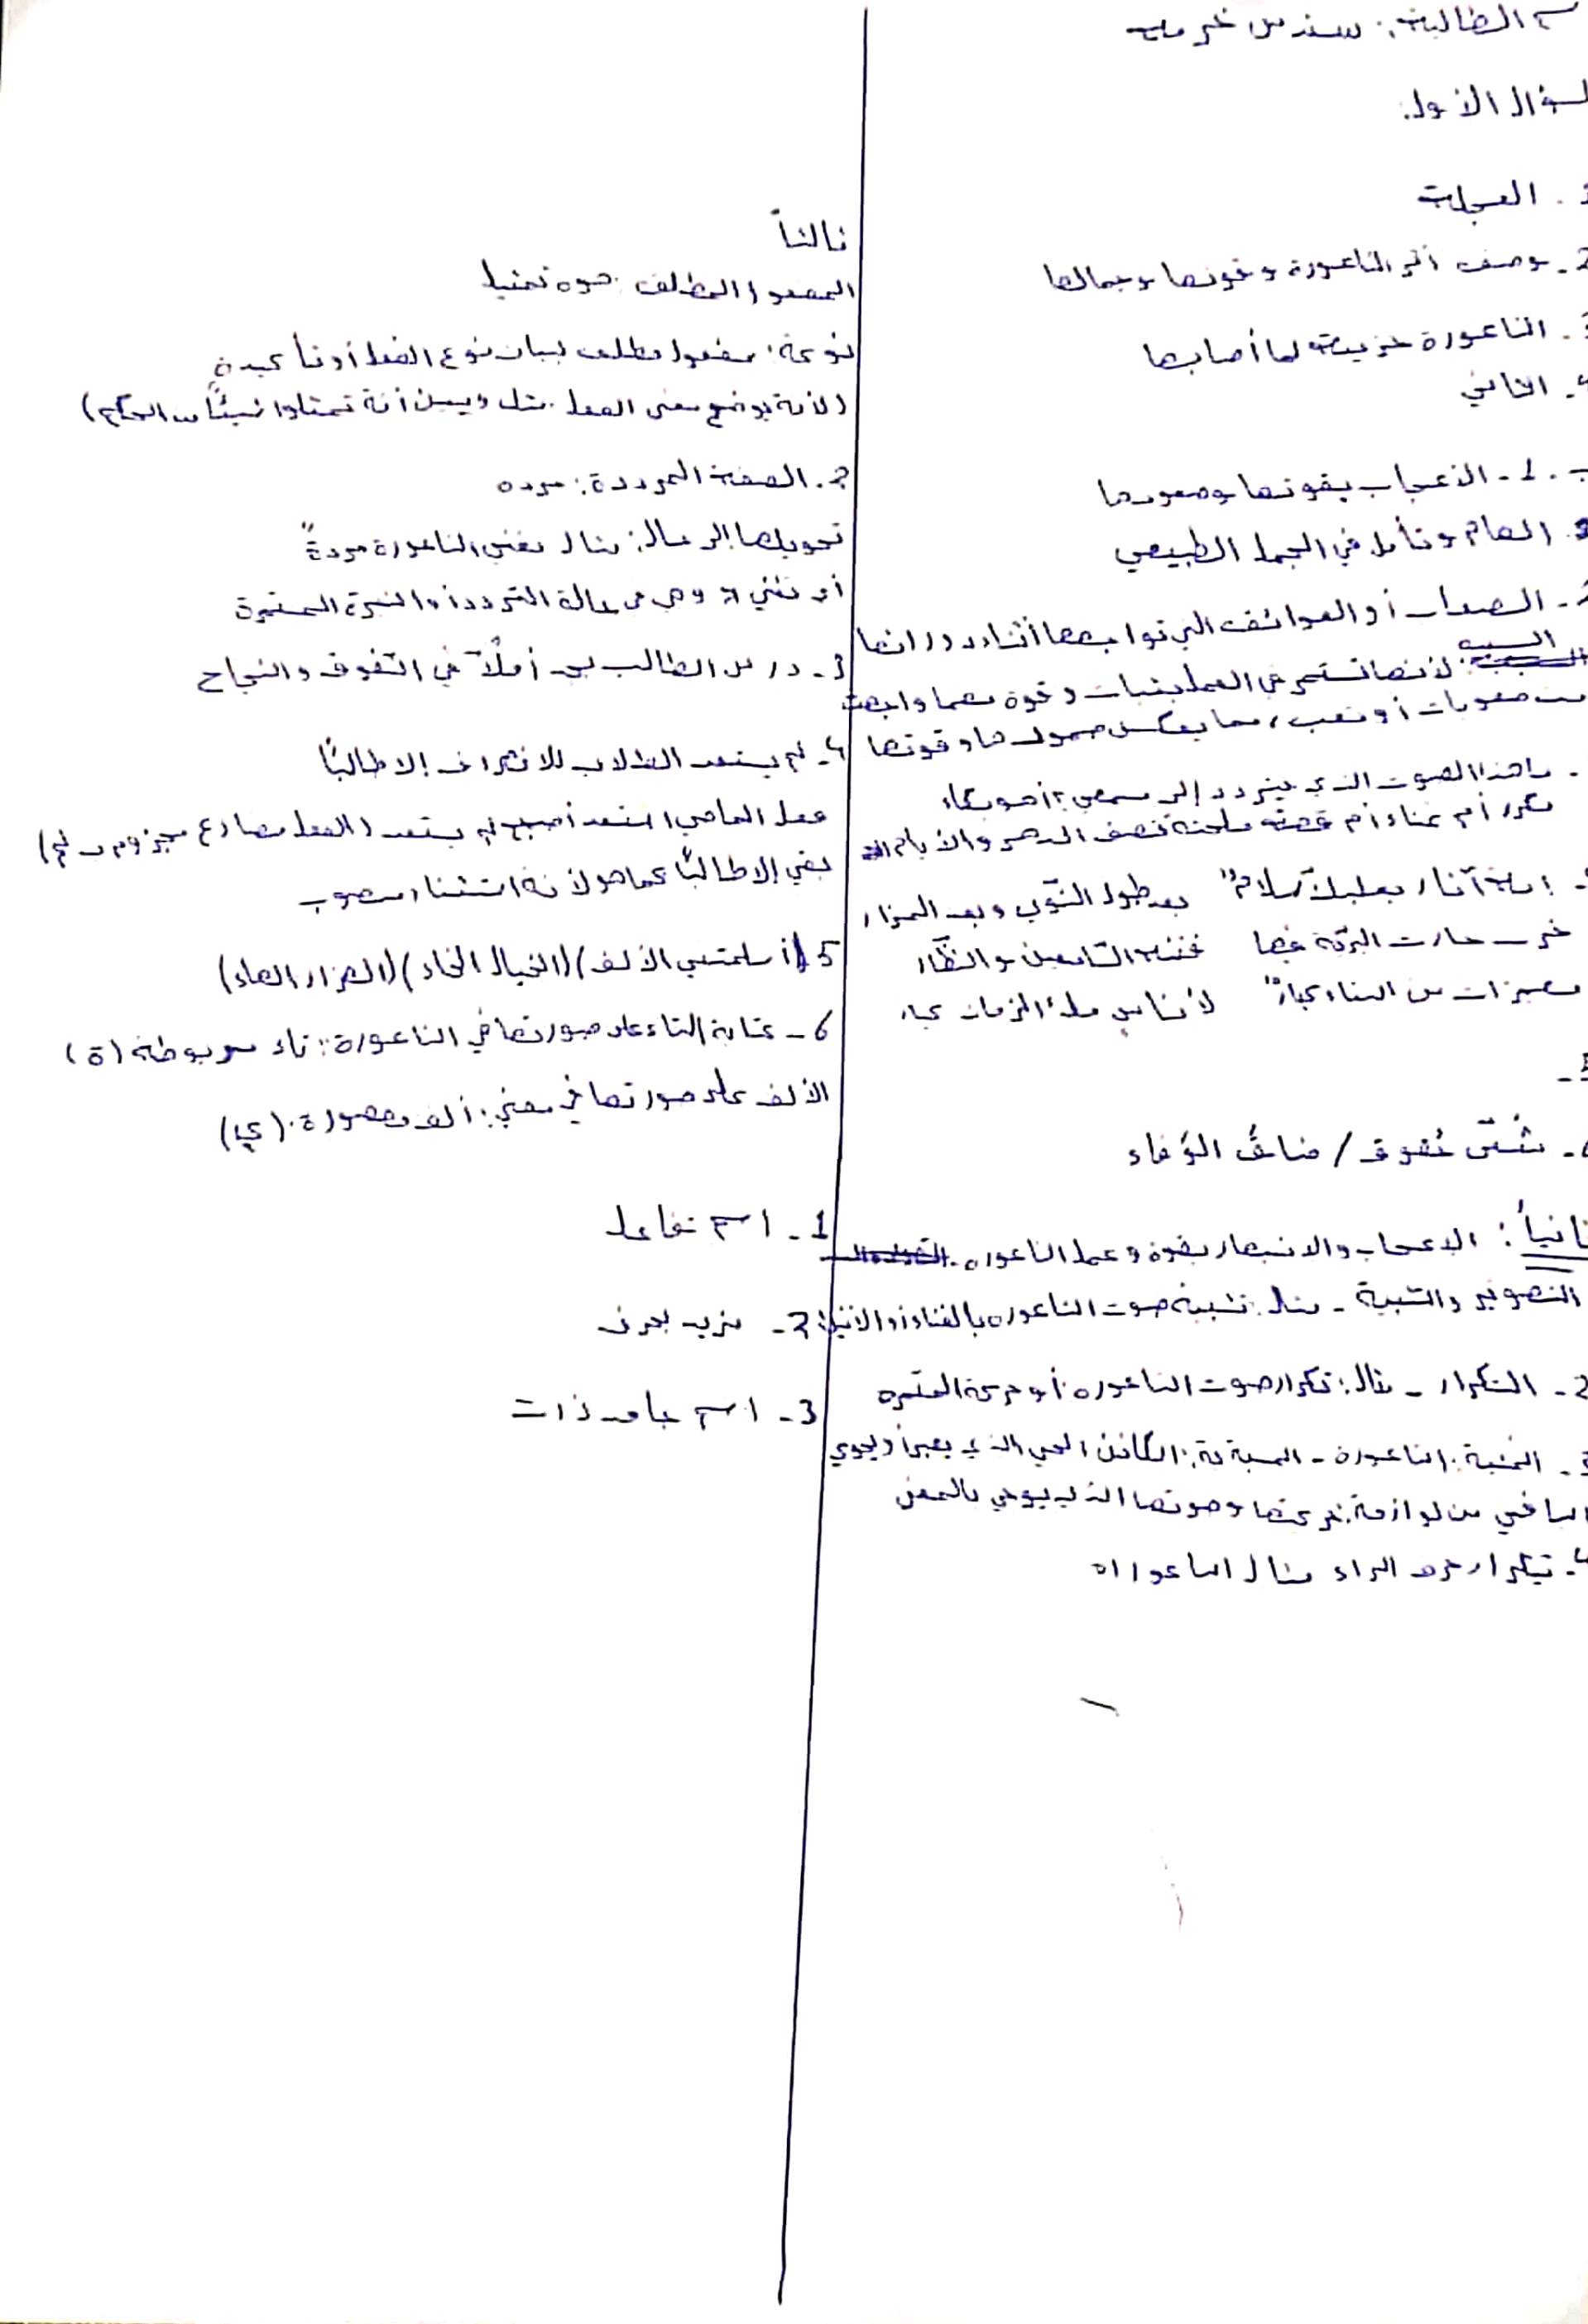 الطالبة: سندس خر
السؤال الأول.
1. العجلة
2- وصف أثر الناعورة وقوتها وجمالها
3- الناعورة حزينة لما أصابها
4- الثاني
ب. 1- الاعجاب بقوتها وصمودها
2. إلهام وتأمل في الجمال الطبيعي
2- الصعاب أو العوائق التي تواجهها أثناء دورانها
السبب: لأنها تستمر في العمل بثبات وقوة مهما واجهت
من صعوبات أو تعب، مما يعكس صمودها وقوتها
ما هذا الصوت الذي يتردد إلى سمعي؟ أهو بكاء
مكرر أم غناء أم قصة ملحنة تصف الدهر والأيام
إيه آثار بعلبك سلامٌ بعد طول النوى وبعد المزار
خرب حارت البرية فيها فتنة السامعين والنظّار
معجزات من البناء كبارٌ لأناس ملء الزمان كبار
5-
6- شتى عُقوق / ضافُ الوُفاء
ثانياً: الاعجاب والانبهار بقوة وعمل الناعوره.
التصوير والتشبية - مثل: تشبية صوت الناعوره بالغناء أو الأنين
2- التكرار - مثال: تكرار صوت الناعوره أو حركة المستمره
3- المشبة: الناعورة - المشبة بة: الكائن الحي الذي يعبر أو يحوي
الباقي من لوازمة: حركتها وصوتها الذي يوحي بالمعنى
4- تكرار حرف الراء مثال الناعورات
ثالثاً
المفعول المطلق: تمثيل
نوعة: مفعول مطلق لبيان نوع الفعل أو تأكيدة
(لأنة يوضح معنى الفعل مثل ويبين أنة تمثلوا شيئاً من الحكم)
2. الصفة المرددة: مرده
تحويلها إلى حال: مثال تغني الناعورة مرددةً
أو تغني وهي في حالة التردد أو النبرة المستمرة
3- درس الطالب بجد أملاً في التفوق والنجاح
4- لم يستعد الطلاب للانصراف إلا طالبًا
فعل الماضي استعد أصبح لم يستعد (الفعل مضارع مجزوم بـ لم)
بقي إلا طالبًا كما هو لأنة استثناء منصوب
5 (أسلمتني الألف) (الخيال الخاد) (الهزار الهاد)
6- كتابة التاء على صورتها في الناعورة: تاء مربوطة (ة)
الألف على صورتها في مغني: ألف مقصورة. (ى)
1- اسم فاعل
2- مزيد بحرف
3- اسم جامد ذات